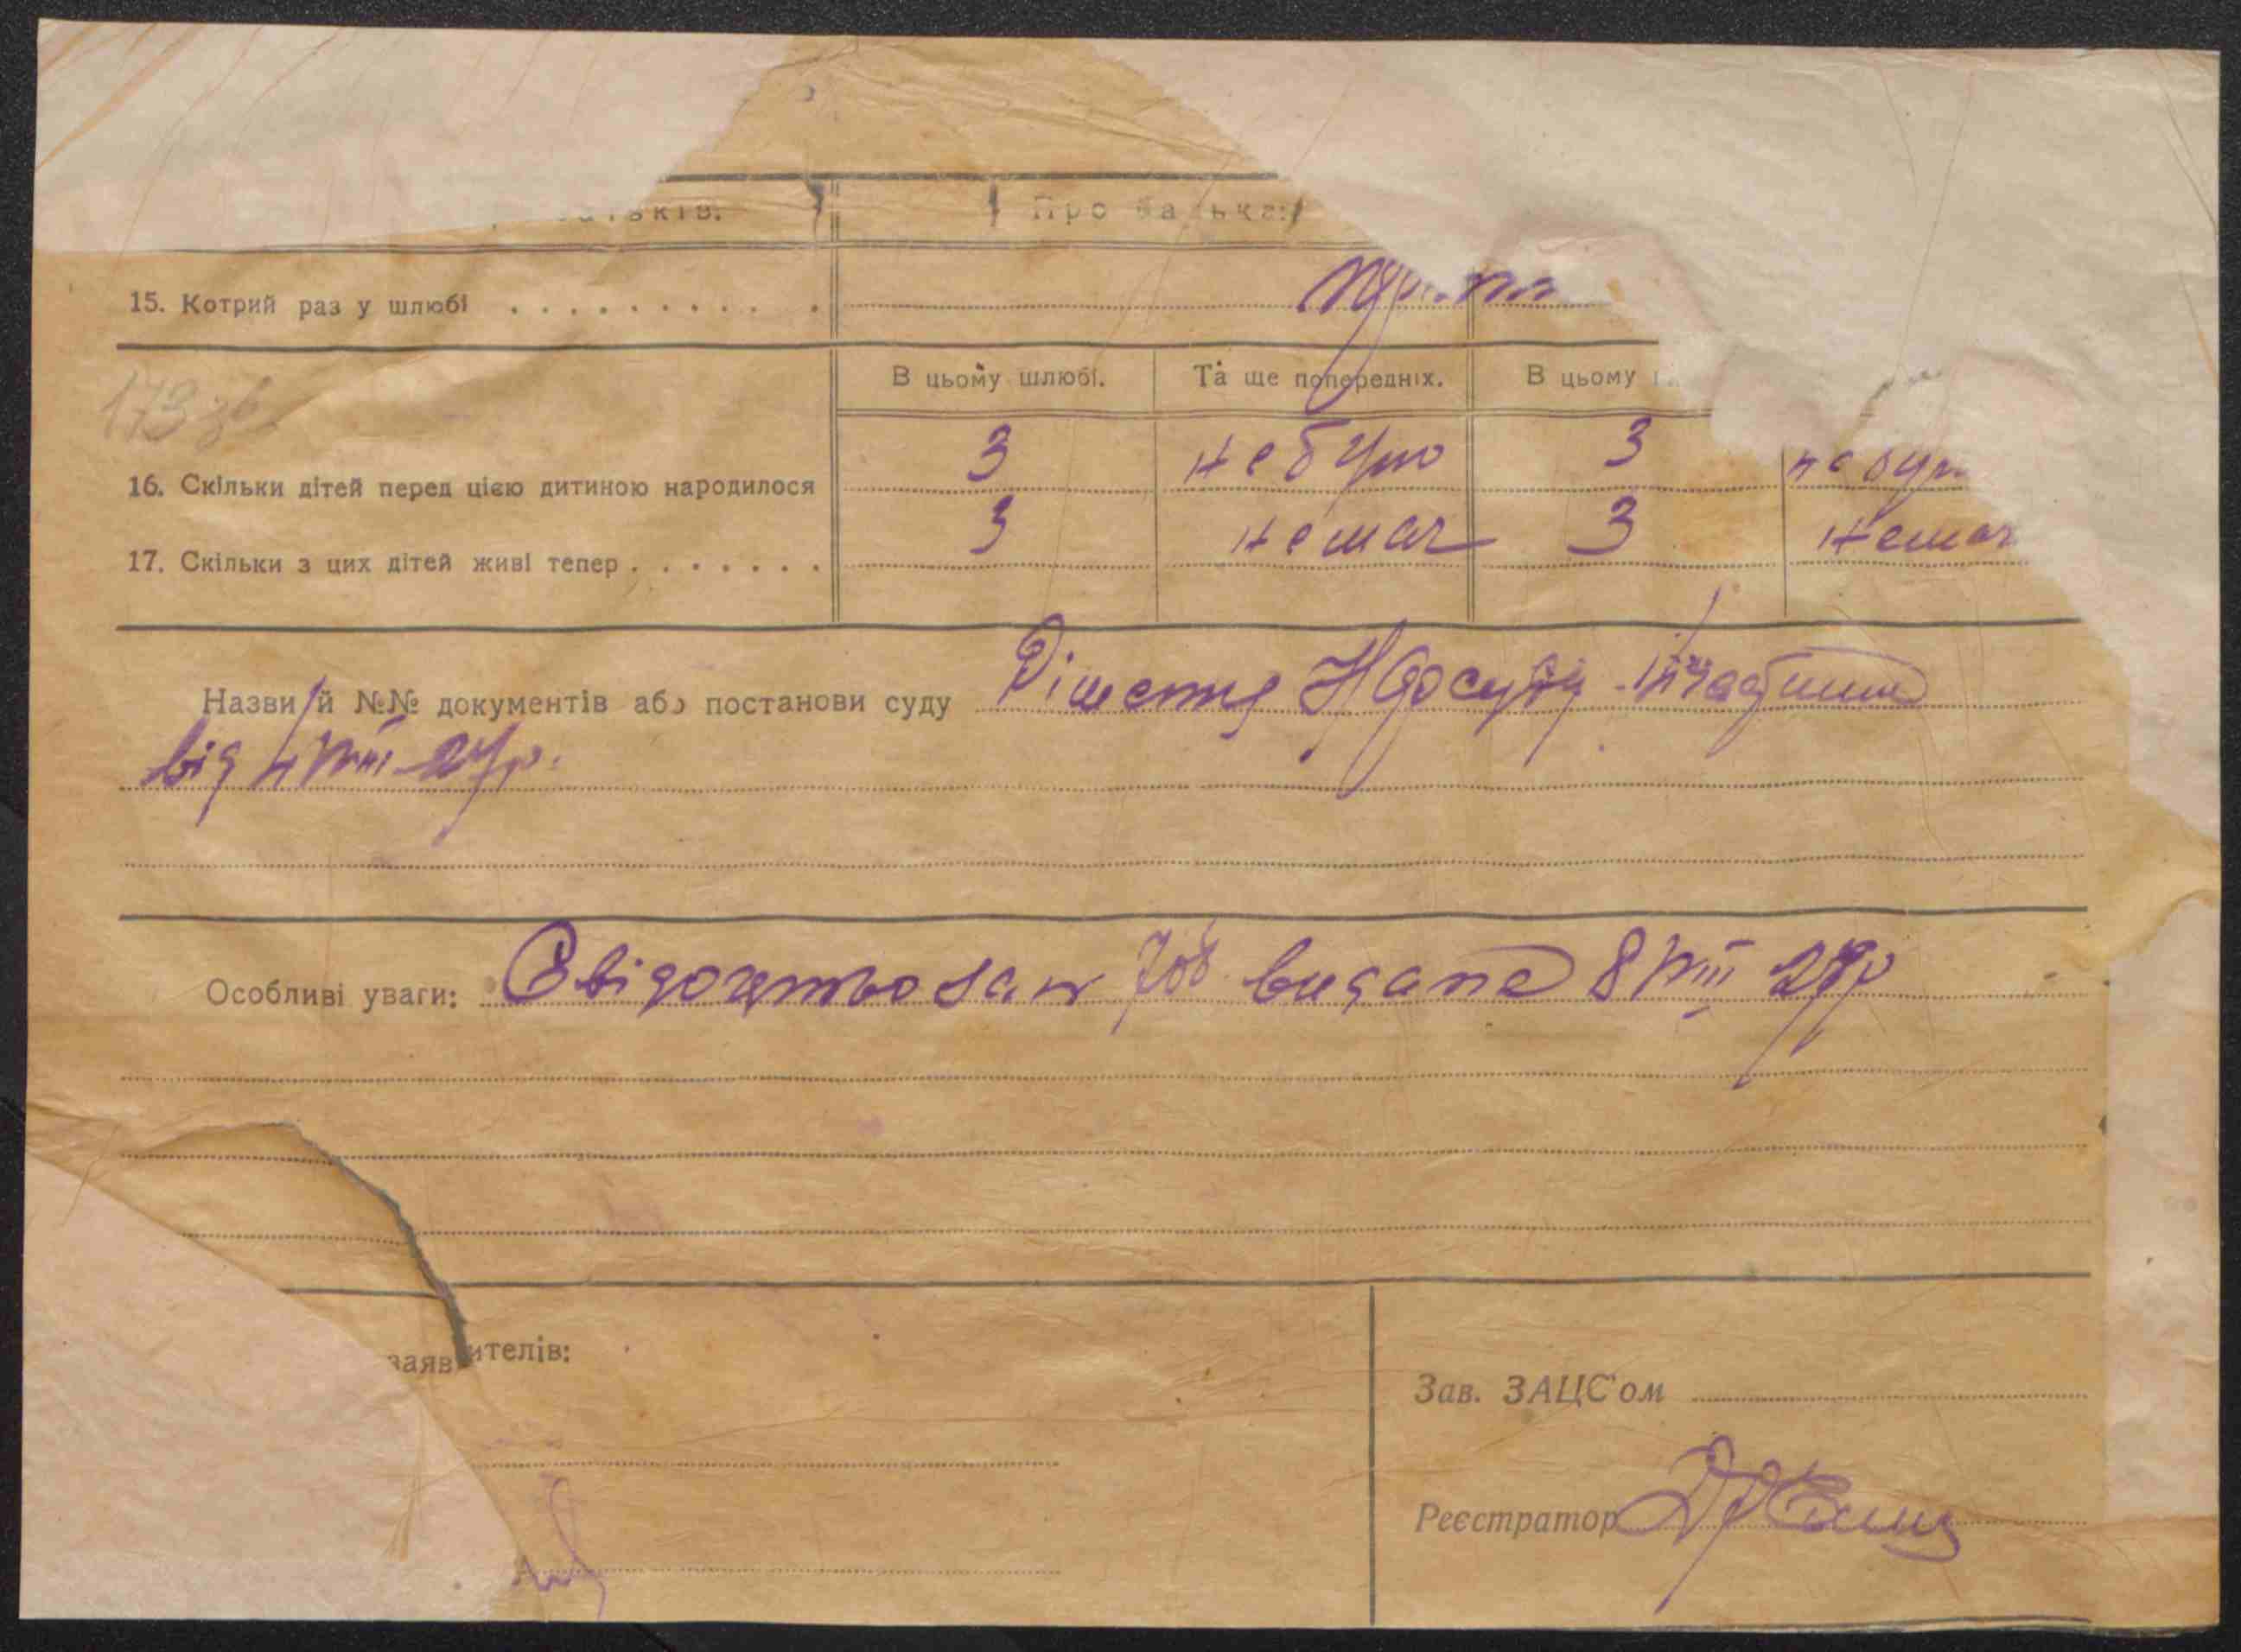 Про батька:
15. Котрий раз у шлюбі
В цьому шлюбі. Та ще попередніх. В цьому
173 зв
3 не було 3 не бул
16. Скільки дітей перед цією дитиною народилося
3 немає 3 немає
17. Скільки з цих дітей живі тепер
Назви й №№ документів або постанови суду Рішення Нарсуду
від 4 VIII 27р.
Особливі уваги: Свідоцтво за № 708 видане 8 VIII 27р
заявителів:
Зав. ЗАЦС'ом
Реєстратор